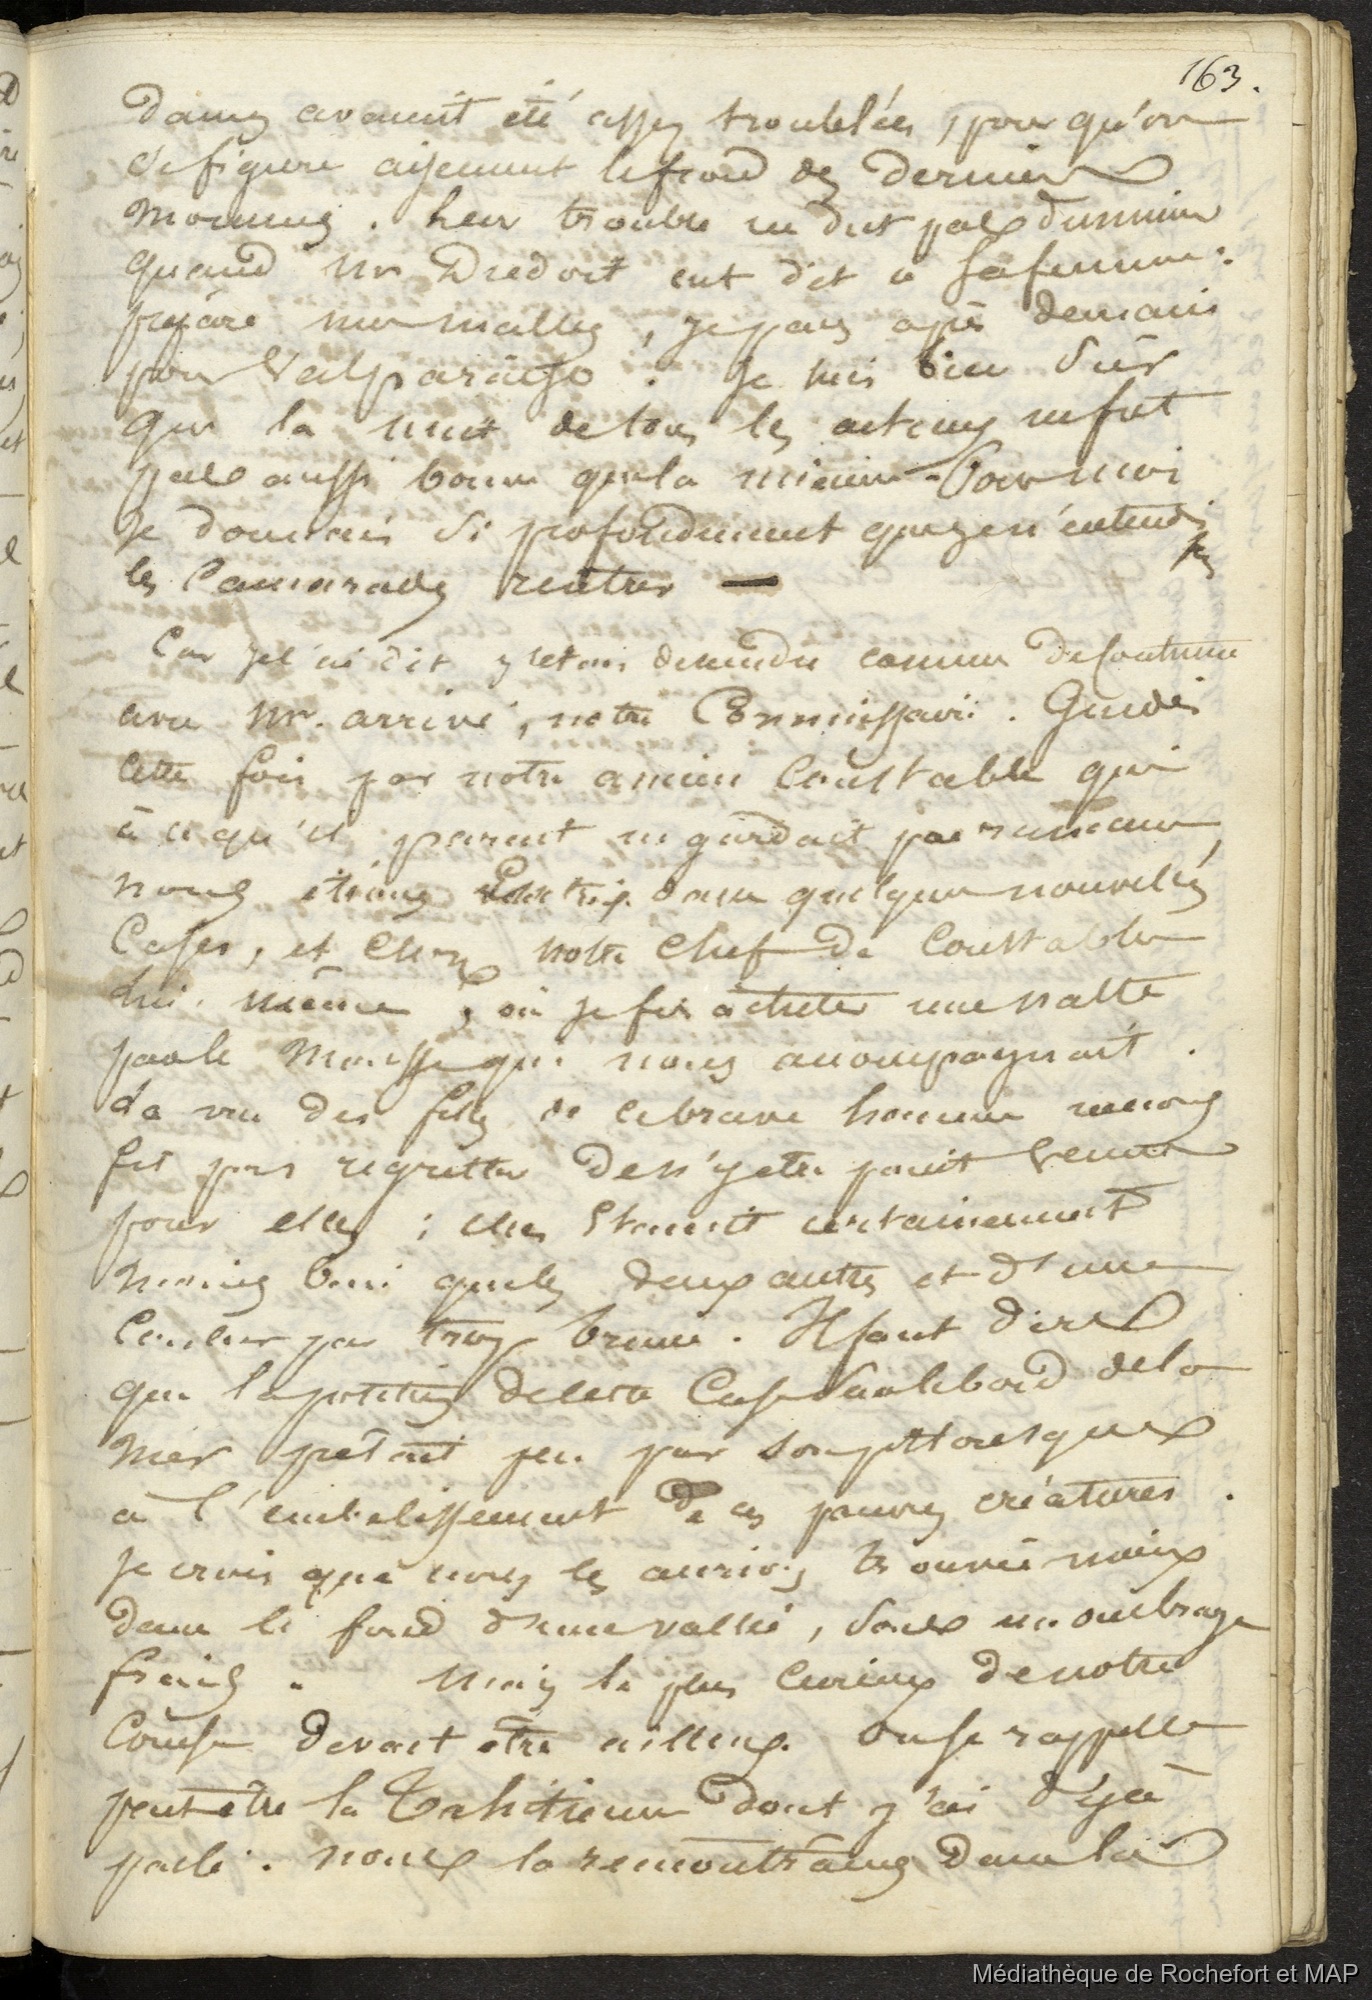 163.
Dames avaient été assez troublées, pour qu'on
se figure aisément le froid des derniers
moments. Leur trouble ne dut pas diminuer
quand Mr Dredort eut dit a sa femme :
prépare mes malles, je pars après demain
pour Valparaiso. Je suis bien sûr
que la nuit de tous les acteurs ne fut
pas aussi bonne que la mienne. Pour moi
je dormais si profondément que je n'entendis
pas
les Camarades rentrer —
Car je l'ai dit j'étais descendu comme de coutume
avec Mr. arrivé, notre Commissaire. Guidés
cette fois par notre ancien Constable qui
à ce qu'il parait ne gardait pas rancune,
nous étions entrés dans quelques nouvelles
Cases, et chez notre chef de Constables
lui même, où je fis acheter une natte
par le Mousse qui nous accompagnait.
La vue des filles de ce brave homme ne nous
fit pas regretter de n'y être point venus
pour elles ; elles étaient certainement
moins bien que les deux autres et d'une
couleur par trop brune. Il faut dire
que la position de cette Case sur le bord de la
mer prêtait peu par son pittoresque
à l'embelissement de ces pauvres créatures.
Je crois que nous les aurions trouvé mieux
dans le fond d'une vallée, sous un ombrage
frais. Mais le plus curieux de notre
Course devait être ailleurs. On se rappelle
peut être la Tahitienne dont j'ai déjà
parlé. nous la remontrâmes dans la
Médiathèque de Rochefort et MAP